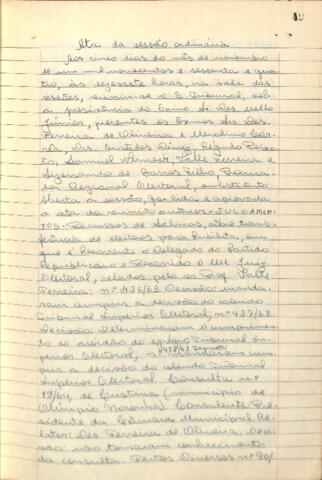 10
Ata da sessão ordinária
Aos cinco dias do mês de novembro
de um mil novecentos e sessenta e qua-
tro, às dezessete horas, na sala das
sessões, reuniu-se o E. Tribunal, sob
a presidência do Exmo Sr. Des. Mello
Júnior, presentes os Exmos Srs. Des.
Ferreira de Oliveira e Merolino Cor-
rêa, Drs. Régulo Peixo-
to, Samuel Werneck, Valle Ferreira e
de Barros Filho, Procura-
dor Regional Eleitoral, substituto.
Aberta a sessão, foi lida e aprovada
a ata da reunião anterior. JULGAMEN-
TOS - Recursos de Salinas, sôbre trans-
ferência de eleitores para Rubelita, em
que é Recorrente o Delegado do Partido
Republicano e Recorrido o MM. Juiz
Eleitoral, relatados pelo sr. Prof. Valle
Ferreira: nº 436/63. Decisão: manda-
ram cumprir a decisão do colendo
Tribunal Superior Eleitoral; nº 437/63.
Decisão: Determinaram o cumprimen-
to do acórdão do egrégio Tribunal Su-
perior Eleitoral; nº 438/63 mandaram cum-
prir a decisão do colendo Tribunal
Superior Eleitoral. Consulta nº
19/64, de Cristina (município de
Olímpio Noronha). Consulente: Pre-
sidente da Câmara Municipal. Re-
lator: Des. Ferreira de Oliveira. Deci-
são: não tomaram conhecimento
da consulta. Feitos Diversos nº 80/